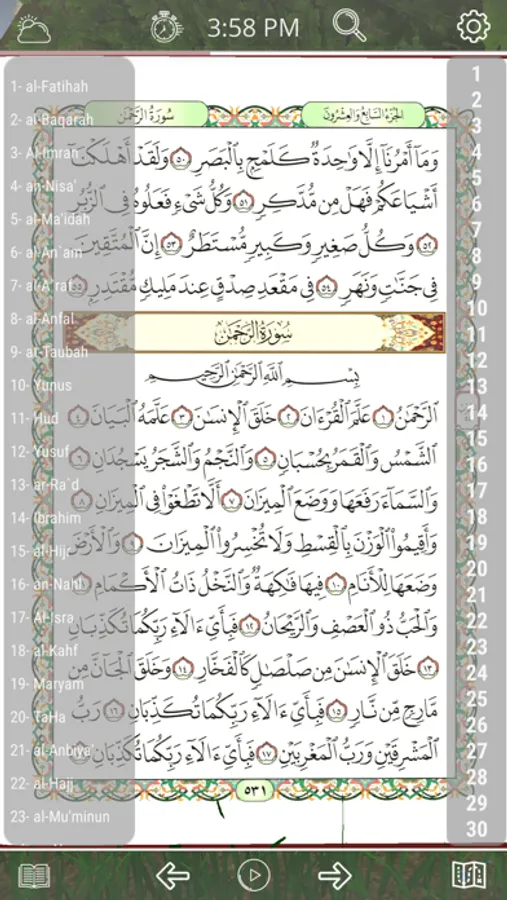 3:58 PM
الجزء السابع والعشرون
سورة الرحمن
وَمَا أَمْرُنَا إِلَّا وَاحِدَةٌ كَلَمْحٍ بِالْبَصَرِ ٥٠ وَلَقَدْ أَهْلَكْنَا
أَشْيَاعَكُمْ فَهَلْ مِن مُّدَّكِرٍ ٥١ وَكُلُّ شَىْءٍ فَعَلُوهُ فِى الزُّبُرِ
٥٢ وَكُلُّ صَغِيرٍ وَكَبِيرٍ مُّسْتَطَرٌ ٥٣ إِنَّ الْمُتَّقِينَ
فِى جَنَّٰتٍ وَنَهَرٍ ٥٤ فِى مَقْعَدِ صِدْقٍ عِندَ مَلِيكٍ مُّقْتَدِرٍ ٥٥
سُورَةُ الرَّحْمَٰن
بِسْمِ اللَّهِ الرَّحْمَٰنِ الرَّحِيمِ
الرَّحْمَٰنُ ١ عَلَّمَ الْقُرْءَانَ ٢ خَلَقَ الْإِنسَٰنَ ٣ عَلَّمَهُ الْبَيَانَ ٤
الشَّمْسُ وَالْقَمَرُ بِحُسْبَانٍ ٥ وَالنَّجْمُ وَالشَّجَرُ يَسْجُدَانِ ٦
وَالسَّمَاءَ رَفَعَهَا وَوَضَعَ الْمِيزَانَ ٧ أَلَّا تَطْغَوْا فِى الْمِيزَانِ ٨
وَأَقِيمُوا الْوَزْنَ بِالْقِسْطِ وَلَا تُخْسِرُوا الْمِيزَانَ ٩ وَالْأَرْضَ
وَضَعَهَا لِلْأَنَامِ ١٠ فِيهَا فَٰكِهَةٌ وَالنَّخْلُ ذَاتُ الْأَكْمَامِ ١١
وَالْحَبُّ ذُو الْعَصْفِ وَالرَّيْحَانُ ١٢ فَبِأَىِّ ءَالَاءِ رَبِّكُمَا تُكَذِّبَانِ
١٣ خَلَقَ الْإِنسَٰنَ مِن صَلْصَٰلٍ كَالْفَخَّارِ ١٤ وَخَلَقَ الْجَانَّ مِن
مَّارِجٍ مِّن نَّارٍ ١٥ فَبِأَىِّ ءَالَاءِ رَبِّكُمَا تُكَذِّبَانِ ١٦ رَبُّ
الْمَشْرِقَيْنِ وَرَبُّ الْمَغْرِبَيْنِ ١٧ فَبِأَىِّ ءَالَاءِ رَبِّكُمَا تُكَذِّبَانِ ١٨
٥٣١
1- al-Fatihah
2- al-Baqarah
3- Al-Imran
4- an-Nisa'
5- al-Ma'idah
6- al-An`am
7- al-A`raf
8- al-Anfal
9- at-Taubah
10- Yunus
11- Hud
12- Yusuf
13- ar-Ra`d
14- Ibrahim
15- al-Hijr
16- an-Nahl
17- Al-Isra
18- al-Kahf
19- Maryam
20- TaHa
21- al-Anbiya'
22- al-Hajj
23- al-Mu'minun
1
2
3
4
5
6
7
8
9
10
11
12
13
14
15
16
17
18
19
20
21
22
23
24
25
26
27
28
29
30